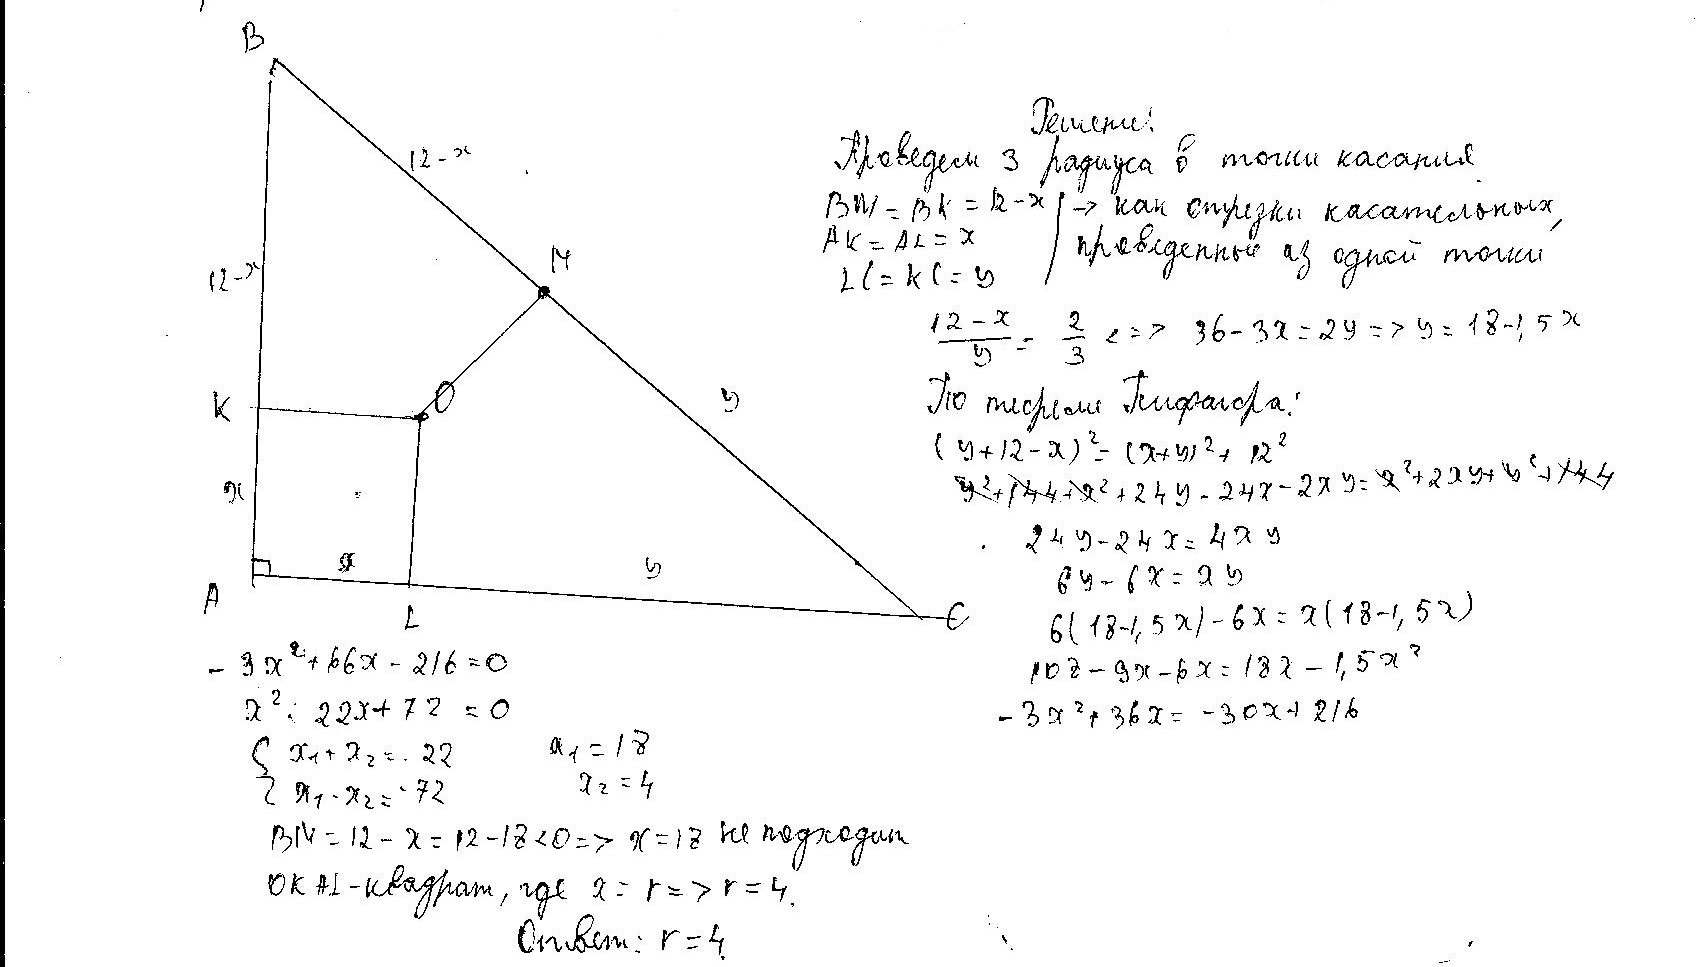 B
12-x
M
12-x
K
O
y
x
x
y
A
L
C
Решение:
Проведем 3 радиуса в точки касания
BM = BK = 12-x → как отрезки касательных,
AK = AL = x проведенные из одной точки
LC = KC = y
12-x/y = 2/3 <=> 36-3x=2y => y=18-1,5x
По теореме Пифагора:
(y+12-x)²=(x+y)²+12²
y²+144+x²+24y-24x-2xy=x²+2xy+y²+144
24y-24x=4xy
6y-6x=xy
6(18-1,5x)-6x=x(18-1,5x)
108-9x-6x=18x-1,5x²
-3x²+36x=-30x+216
-3x²+66x-216=0
x²-22x+72=0
x₁+x₂=22 x₁=18
x₁·x₂=72 x₂=4
BM=12-x=12-18<0=> x=18 не подходит
OKAL-квадрат, где x=r=>r=4.
Ответ: r=4